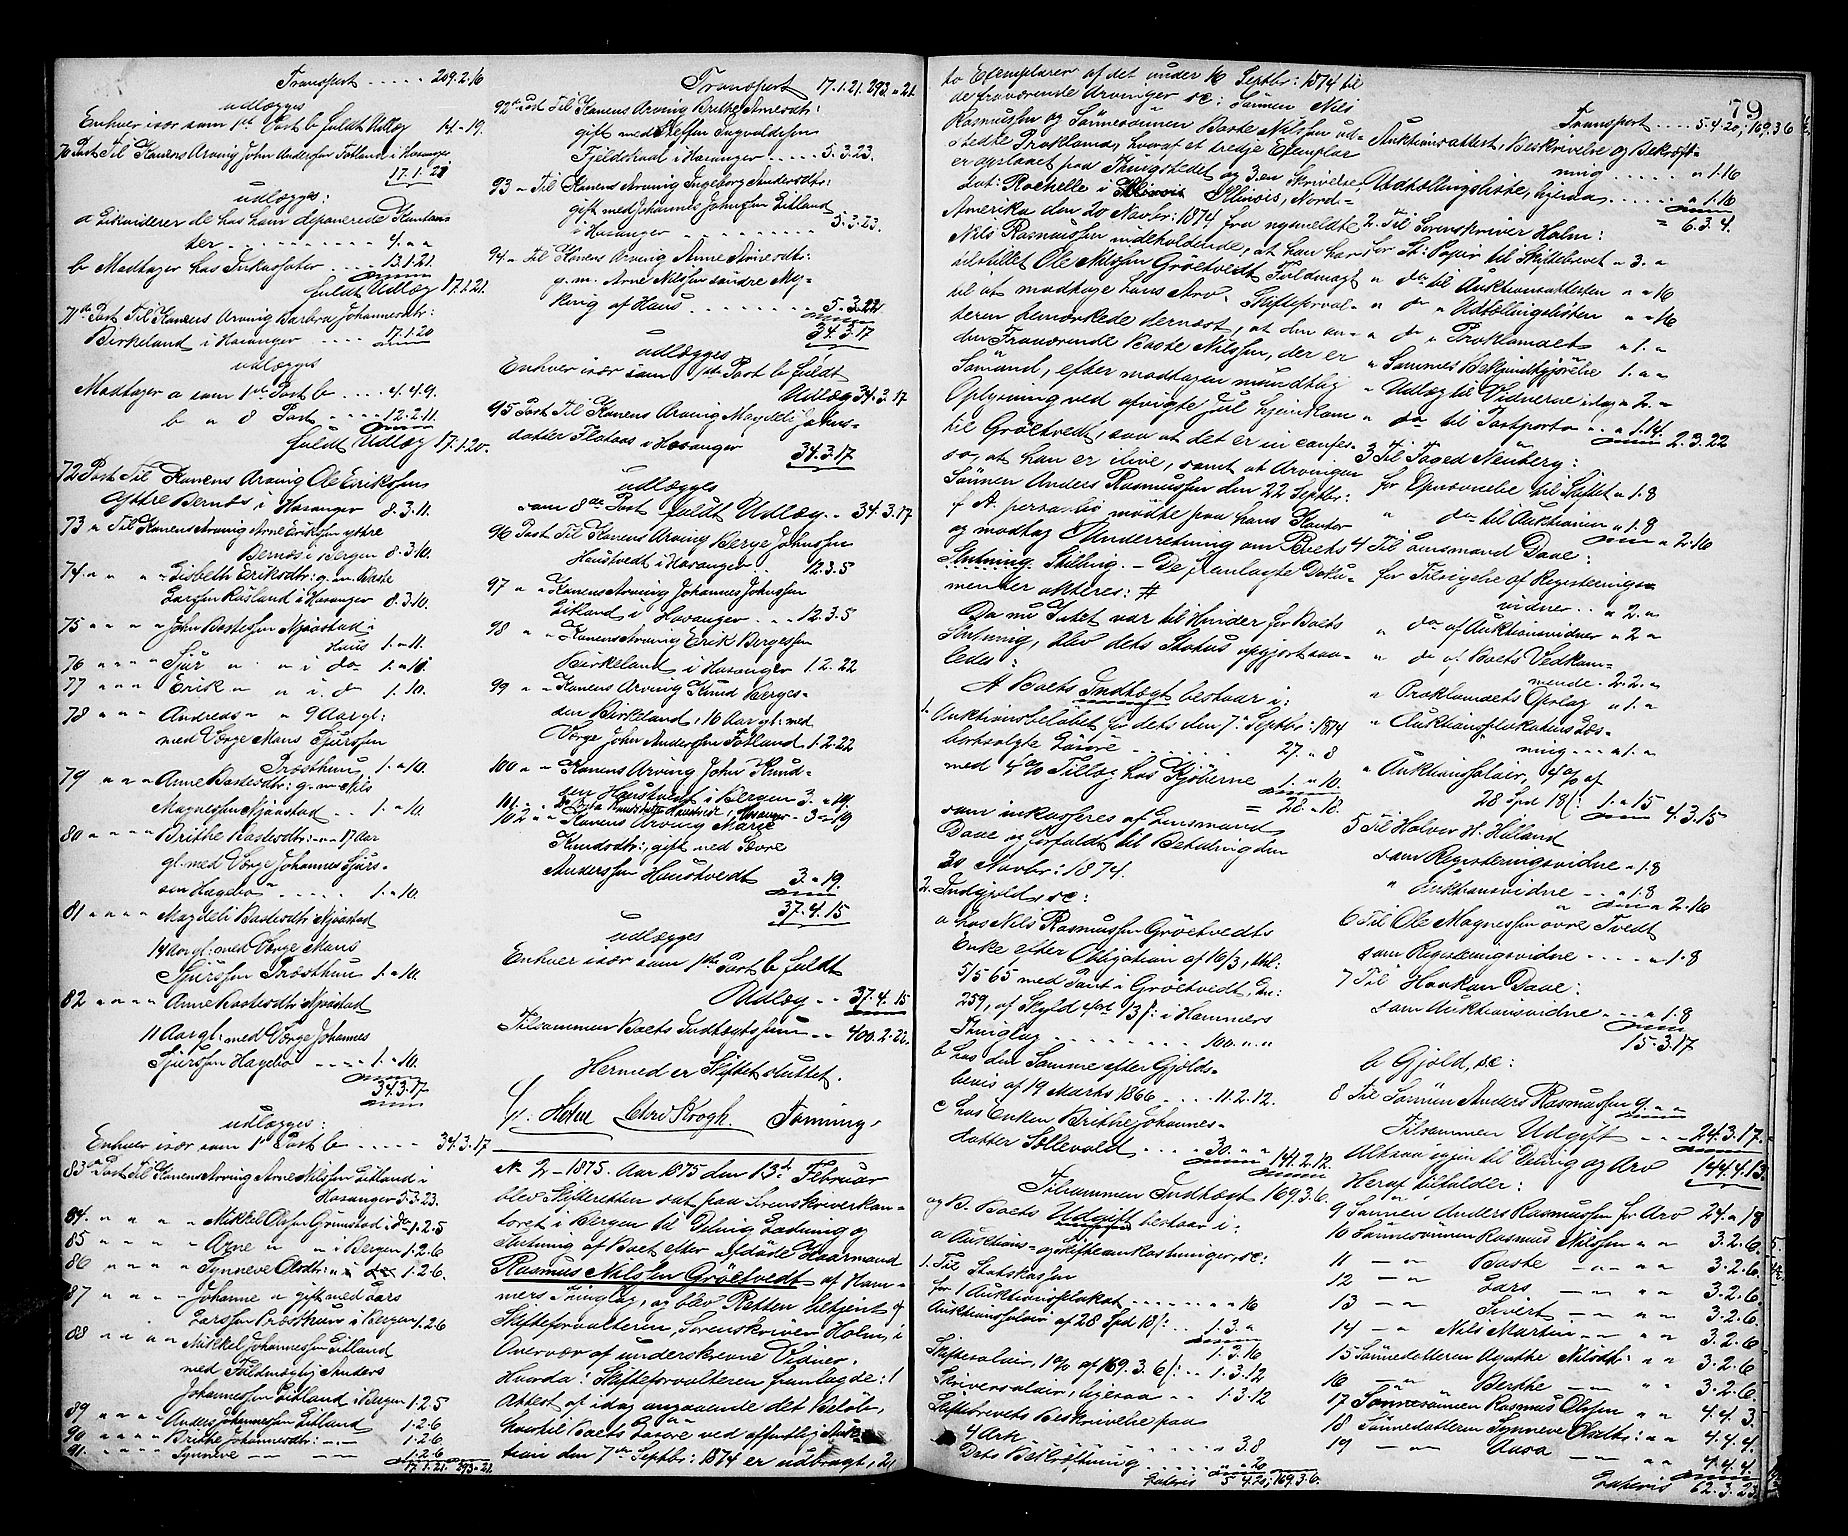 Transport ..... 209.2.16
udlægges
Enhver især som 1ste Post b fuldt Udlæg 14 - 19.
70 Post Til Konens Arving John Anderssen Totland i Hosanger
17.1.21
udlægges:
a Likviderer de hos ham deponerede Kontan-
ter .......... 4. " "
b Modtager hos Inkassator ... 13.1.21.
fuldt Udlæg 17.1.21.
71de Post Til Konens Arving Barbra Johannesdtr:
Birkeland i Hosanger .... 17.1.20
udlægges
Modtager a som 1ste Post b .... 4.4.9.
b " 8 Post .... 12.2.11.
fuldt Udlæg 17.1.20.
72 Post Til Konens Arving Ole Eriksen
Yttre Bernæs i Hosanger 8.3.11.
73 " Til Konens Arving Arne Eriksen yttre
Bernæs i Bergen 8.3.10.
74 " " " Lisbeth Eriksdtr: g. m. Baste
Larssen Røsland i Hosanger 8.3.10.
75 " " " " John Bastessen Mjøastad i
Haus 1. " 11.
76 " " " " Sjur " " " i do 1. " 11
77 " " " Erik " " i do 1. " 10.
78 " " " Andreas " " 9 Aar gl:
med Værge Mons Sjurssen
Træsthun 1. " 10.
79 " " " Anne Bastesdtr: g. m. Nils
Magnessen Mjøastad .. 1. " 10.
80 " " " " Brithe Bastesdtr: " " 17 Aar
gl: med Værge Johannes Sjurs-
sen Hagebø ..... 1. " 10.
81 " " " " Magdeli Bastesdtr: Mjøastad
14 Aar gl: med Værge Mons
Sjurssen Træsthun 1. " 10.
82 " " " " Anne Bastesdtr: Mjøastad
11 Aar gl: med Værge Johannes
Sjurssen Hagebø .... 1. " 10.
34.3.17
udlægges:
Enhver især som 1ste Post b ..... 34.3.17
83 Post Til Konens Arving Arne Nilssen Eitland i
Hosanger 5.3.23.
84. " " " " Mikkel Olssen Grimstad i do 1.2.5
85 " " " " Arne " " i Bergen 1.2.6
86 " " " " Synneve Olsdtr: " i do 1.2.6.
87 " " " " Johanne " gift med Lars
Larssen Træsthun i Bergen 1.2.6
88 " " " " Mikkel Johannessen Eitland
med Fuldmægtig Anders
Johannessen Eitland i Bergen 1.2.5
89 " " " " Anders Johannessen Eitland 1.2.6
90 " " " " Brithe Johannesdtr: — " — 1.2.6
91. " " " " Synneve — " — 1.2.6
17.1.21. 293 " 21.
Transport 17.1.21. 293 " 21.
92de Post Til Konens Arving Brithe Arnesdtr:
gift med Steffen Ingvaldssen
Fjeldskaal i Hosanger ..... 5.3.23.
93 " Til Konens Arving Ingeborg Andersdtr:
gift med Johannes Johnssen Eitland
i Hosanger ........ 5.3.23.
94 " Til Konens Arving Anne Arnesdtr:
g. m. Arne Nilssen søndre My-
king af Haus ........ 5.3.22.
34.3.17
udlægges
Enhver især som 1ste Post b fuldt
Udlæg 34.3.17
95 Post Til Konens Arving Magdeli Johns-
datter Flotaas i Hosanger 34.3.17
udlægges
som 8de Post fuldt Udlæg .. 34.3.17
96 Post Til Konens Arving Berge Johnssen
Haustvedt i Hosanger .. 12.3.5
97 " " Konens Arving Johannes Johnssen
Eikand i Hosanger ... 12.3.5
98 " " Konens Arving Erik Bergessen
Birkeland i Hosanger 1.2.22
99 " " Konens Arving Knud Berges-
sen Birkeland, 16 Aar gl: med
Værge John Anderssen Totland 1.2.22
100 " " Konens Arving John Knud-
sen Haustvedt i Bergen 3. " 19.
101. " " do Brita Knudsdatter Haustvedt, Hosanger - 3 " 19
102 " " Konens Arving Marge
Knudsdtr:, gift med Sævre
Anderssen Haustvedt 3. " 19.
37.4.15
udlægges
Enhver især som 1ste Post b fuldt
Udlæg .. 37.4.15
Tilsammen Boets Indtægtssum .. 400.2.22.
Hermed er Skiftet sluttet.
Holm Chrd Krogh. Tonning.
No 2 - 1875. Aar 1875 den 13de Februar
blev Skifteretten sat paa Sorenskriverkon-
toret i Bergen til Deling, Lodning og
Slutning af Boet efter afdøde Kaarmand
Rasmus Nilssen Gröetvedt af Ham-
mers Thinglag, og blev Retten betjent af
Skifteforvalteren, Sorenskriver Holm, i
Overvær af underskrevne Vidner.
Hvorda: Skifteforvalteren fremlagde: 1
Attest af idag angaaende det Beløb,
hvortil Boets Løsøre ved offentlig Auk-
tion den 7de Septbr: 1874 er udbragt, 2,
to Exemplarer af det under 16 Septbr: 1874 til
de fraværende Arvinger sc: Sønnen Nils
Rasmussen og Sønnesønnen Baste Nilssen ud-
stedte Proklama, hvoraf et tredje Exemplar
er opslaaet paa Thingstedet og 3. en Skrivelse
dat: Rochelle i Illinois, Nord-
Amerika den 20 Novbr: 1874 fra nysmeldte
Nils Rasmussen indeholdende, at han har
udstillet Ole Nilssen Gröetvedt Fuldmagt
til at modtage hans Arv. Skifteforval-
teren bemærkede dernæst, at den an-
den Fraværende Baste Nilssen, der er
Sømand, efter modtagen mundtlig
Oplysning ved afvigte Jul hjemkom
til Gröetvedt, saa at det er in confes-
so, at han er ilive, samt at Arvingen
Sønnen Anders Rasmussen den 22 Septbr:
f. A. personlig mødte paa hans Kontor
og modtog Underretning om Boets
Slutning. Stilling. - De fremlagte Doku-
menter akteres: #
Da nu Intet var til Hinder for Boets
Slutning, blev dets Status opgjort saa-
ledes:
A Boets Indtægt bestaar i:
1. Auktionsbeløbet for dets den 7de Septbr: 1874
bortsolgte Løsøre ....... 27. " 8
med 4% Tillæg hos Kjøberne 1. " 10.
= 28. " 18.
som inkasseres af Lensmand
Daae og forfaldt til Betaling den
30 Novbr: 1874.
2. Indgjeld, sc:
a hos Nils Rasmussen Gröetvedts
Enke efter Obligation af 16/3, thl:
5/5 65 med Pant i Gröetvedt, Ln:
259, af Skyld 4ort 13/: i Hammers
Thinglag ........ 100. " "
b hos den Samme efter Gjelds-
bevis af 19 Marts 1866 .... 11.2.12.
c hos Enken Brithe Johannes-
datter Sollevold ... 30. " " 141.2.12.
Tilsammen Indtægt 169.3.6.
og B. Boets Udgift bestaar i:
a Auktions- og Skifteomkostninger, sc:
1. Til Statskassen
for 1 Auktionsplakat ....... " 16
Auktionssalair af 28 Spd 18/: .. 1.3. "
1.3.16
Skiftesalair, 1% af 169.3.6/: .. 1.3.12
Skriversalair, ligesaa .. 1.3.12
Skiftebrevets Beskrivelse paa
4 Ark ........ " 3.8
Dets Bekræftning ..... " 20
Lateris 5.4.20; 169.3.6.
79
Transport .... 5.4.20; 169.3.6
Auktionsattest, Beskrivelse og Bekræft-
ning ..... " 1.16
Udlodningsliste, ligesaa ...... " 1.16
= 6.3.4.
2. Til Sorenskriver Holm:
for St: Papir til Skiftebrevet " 3. "
" do til Auktionsattesten " " 16
" do " Udlodningslisten " " 16
" do " Proklamaet " 1. "
" Sammes Bekjendtgjørelse 1. " "
" Udlæg til Vidnerne idag " 2. "
" do til Postporto .. " 1.14. 2.3.22
3 Til Foged Neuberg:
for Oprævnelse til Skiftet " 1.8
" do til Auktionen " 1.8
" 2.16
4 Til Lensmand Daae:
for Tilsigelse af Registrerings-
vidner .. " 2. "
" do af Auktionsvidner " 2 "
" do af Boets Vedkom-
mende. 2.2. "
" Proklamaets Opslag " 1. "
" Auktionsplakatens Læs-
ning ... " 1. "
" Auktionssalair, 4% af
28 Spd 18/: 1. " 15 4.3.15
5 Til Halvor H. Helland
som Registreringsvidne " 1.8
" Auktionsvidne .. " 1.8
" 2.16
6 Til Ole Magnessen øvre Tvedt
som Registreringsvidne .... " 1.8
7 Til Haakon Daae:
som Auktionsvidne ... " 1.8
15.3.17
b Gjeld, sc:
8 Til Sønnen Anders Rasmussen 9. " "
Tilsammen Udgift ... 24.3.17.
Altsaa igjen til Deling og Arv 144.4.13.
Heraf tilfalder:
9 Sønnen Anders Rasmussen for Arv 24. " 18
10 Sønnesønnen Rasmus Nilssen " " 3.2.6.
11 — " — Baste — " " " 3.2.6.
12 — " — Lars — " " 3.2.6.
13 — " — Sivert — " " 3.2.6.
14 — " — Nils Martin — " " 3.2.6.
15 Sønnedatteren Agathe Nilsdtr: " " 3.2.6
16 — " — Berthe — " " 3.2.6.
17 Sønnesønnen Rasmus Olssen " " 4.4.3.
18 Sønnedatteren Synneve Olsdtr: " " 4.4.4.
19 — " — Anna — " " 4.4.4.
Lateris 62.3.23.